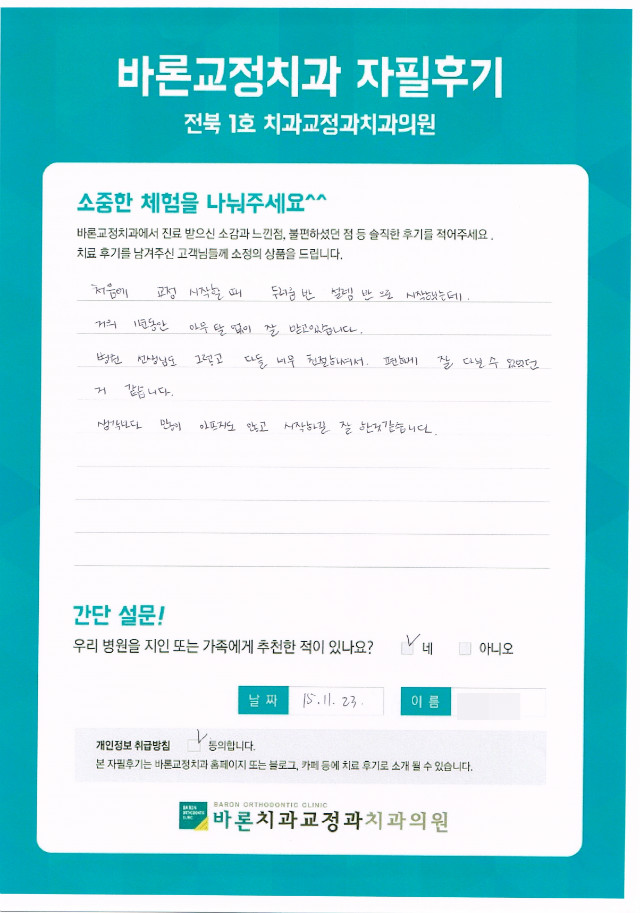 바론교정치과 자필후기
전북 1호 치과교정과치과의원
소중한 체험을 나눠주세요^^
바론교정치과에서 진료 받으신 소감과 느낀점, 불편하셨던 점 등 솔직한 후기를 적어주세요.
치료 후기를 남겨주신 고객님들께 소정의 상품을 드립니다.
처음에 교정 시작할 때 두려움 반 설렘 반 으로 시작했는데.
거의 1년동안 아무 탈 없이 잘 받고있습니다.
병원 선생님도 그렇고 다들 너무 친절하셔서. 편하게 잘 다닐 수 있었던
거 같습니다.
생각보다 많이 아프지도 않고 시작하길 잘 한것같습니다.
간단 설문!
우리 병원을 지인 또는 가족에게 추천한 적이 있나요? 네 아니오
날 짜 15.11.23. 이 름
개인정보 취급방침 동의합니다.
본 자필후기는 바론교정치과 홈페이지 또는 블로그, 카페 등에 치료 후기로 소개 될 수 있습니다.
BARON ORTHODONTIC CLINIC
바론치과교정과치과의원